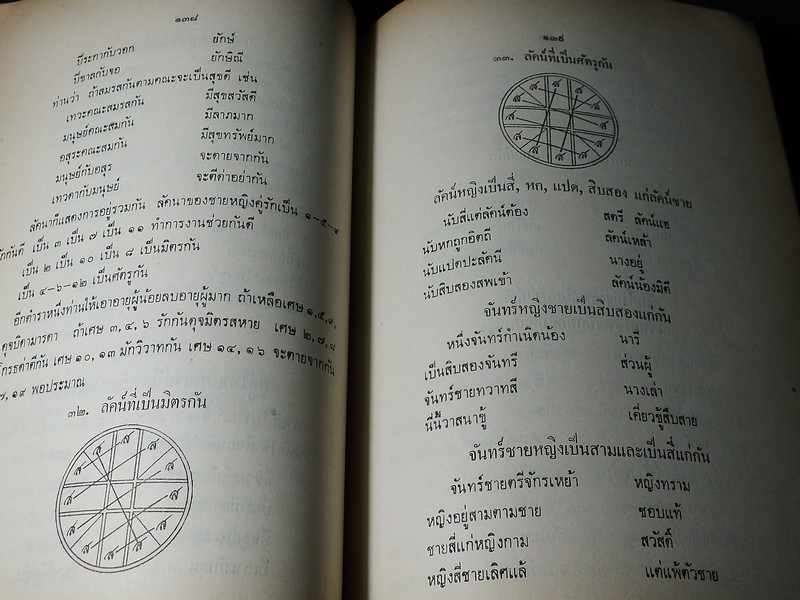 ๑๓๘
ปีระกากับวอก ยักษ์
ปีขาลกับจอ ยักษิณี
ท่านว่า ถ้าสมรสกันตามคณะจะเป็นสุขดี เช่น
เทวะคณะสมรสกัน มีสุขสวัสดี
มนุษย์คณะสมกัน มีลาภมาก
อสุระคณะสมกัน มีสุขทรัพย์มาก
มนุษย์กับอสุร จะตายจากกัน
เทวดากับมนุษย์ จะตีด่าอย่ากัน
ลัคนาก็แสดงการอยู่รวมกัน ลัคนาของชายหญิงคู่รักเป็น ๑-๕-๙
รักกันดี เป็น ๓ เป็น ๗ เป็น ๑๑ ทำการงานช่วยกันดี
เป็น ๒ เป็น ๑๐ เป็น ๘ เป็นมิตรกัน
เป็น ๔-๖-๑๒ เป็นศัตรูกัน
อีกตำราหนึ่งท่านให้เอาอายุผู้น้อยลบอายุผู้มาก ถ้าเหลือเศษ ๑,๕,๙,
ดุจบิดามารดา ถ้าเศษ ๓, ๔, ๖ รักกันดุจมิตรสหาย เศษ ๒, ๗, ๘
โกรธด่าตีกัน เศษ ๑๐, ๑๓ มักวิวาทกัน เศษ ๑๔, ๑๖ จะตายจากกัน
๗, ๑๙ พอประมาณ
๓๒. ลัคน์ที่เป็นมิตรกัน
ส ส ส ส ส ส ส ส ส ส ส ส
๑๓๙
๓๓. ลัคน์ที่เป็นศัตรูกัน
ส ส ส ส ส ส ส ส ส ส ส ส
ลัคน์หญิงเป็นสี่, หก, แปด, สิบสอง แก่ลัคน์ชาย
นับสี่แต่ลัคน์ต้อง สตรี ลัคน์แฮ
นับหกถูกอิตถี ลัคน์เหล้า
นับแปดปะลัคนี นางอยู่
นับสิบสองสพเข้า ลัคน์น้องมิดี
จันทร์หญิงชายเป็นสิบสองแก่กัน
หนึ่งจันทร์กำเนิดน้อง นารี
เป็นสิบสองจันทรี ส่วนผู้
จันทร์ชายทวาทสี นางเล่า
นี่นี้วาสนาชู้ เคี่ยวชู้สืบสาย
จันทร์ชายหญิงเป็นสามและเป็นสี่แก่กัน
จันทร์ชายตรีจักรเหย้า หญิงทราม
หญิงอยู่สามตามชาย ชอบแท้
ชายสี่แก่หญิงกาม สวัสดิ์
หญิงสี่ชายเลิศแล้ แต่แพ้ตัวชาย